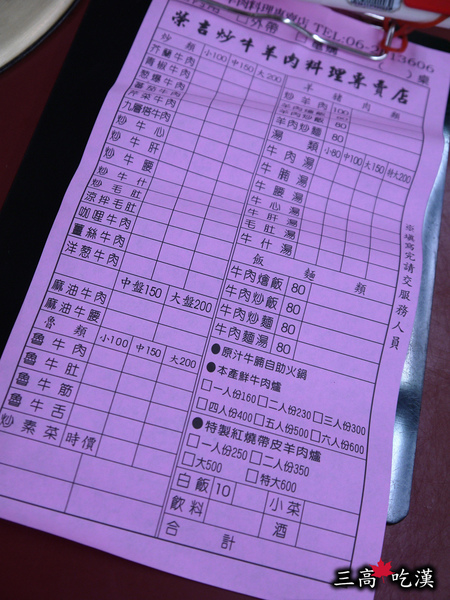 料理專賣店 TEL:06-2
13606
□外帶
）桌
榮吉炒牛羊肉料理專賣店
炒類 小100 中150 大200
芥蘭牛肉
青椒牛肉
蔥爆牛肉
蕃茄牛肉
芹菜牛肉
九層塔牛肉
炒牛心
炒牛肝
炒牛腰
炒牛什
炒毛肚
涼拌毛肚
咖哩牛肉
薑絲牛肉
洋蔥牛肉
中盤150 大盤200
麻油牛肉
麻油牛腰
魯類 小100 中150 大200
魯牛肉
魯牛肚
魯牛筋
魯牛舌
炒素菜 時價
羊豬肉類
炒羊肉 100
80
羊肉炒麵 80
湯類 小80 中100 大150 特大200
牛肉湯
牛腩湯
牛腰湯
牛心湯
牛肝湯
毛肚湯
牛什湯
飯麵類
牛肉燴飯 80
牛肉炒飯 80
牛肉炒麵 80
牛肉麵湯 80
●原汁牛腩自助火鍋
●本產鮮牛肉爐
□一人份160□二人份230□三人份300
□四人份400□五人份500□六人份600
●特製紅燒帶皮羊肉爐
□一人份250□二人份350
□大500 □特大600
白飯 10 小菜
飲料 酒
合計
※填寫完請交服務人員
三高吃漢